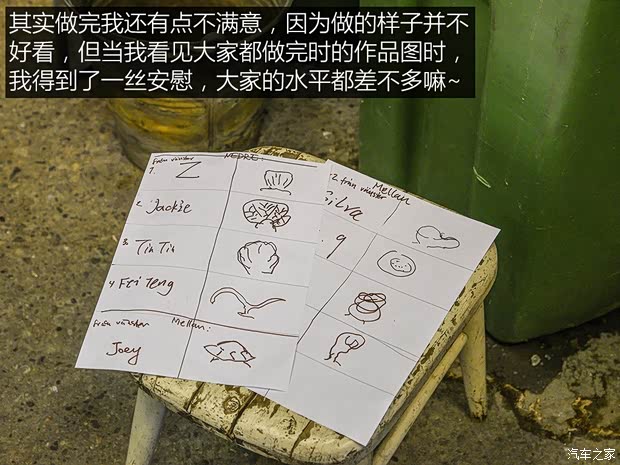 其实做完我还有点不满意，因为做的样子并不
好看，但当我看见大家都做完时的作品图时，
我得到了一丝安慰，大家的水平都差不多嘛~
från vänster
NEDRE:
1. Z
2. Jackie
3. Tin Tin
4 Fei Teng
från vänster Mellan:
Joey
Mellan
2. från vänster
Silva
9
汽车之家